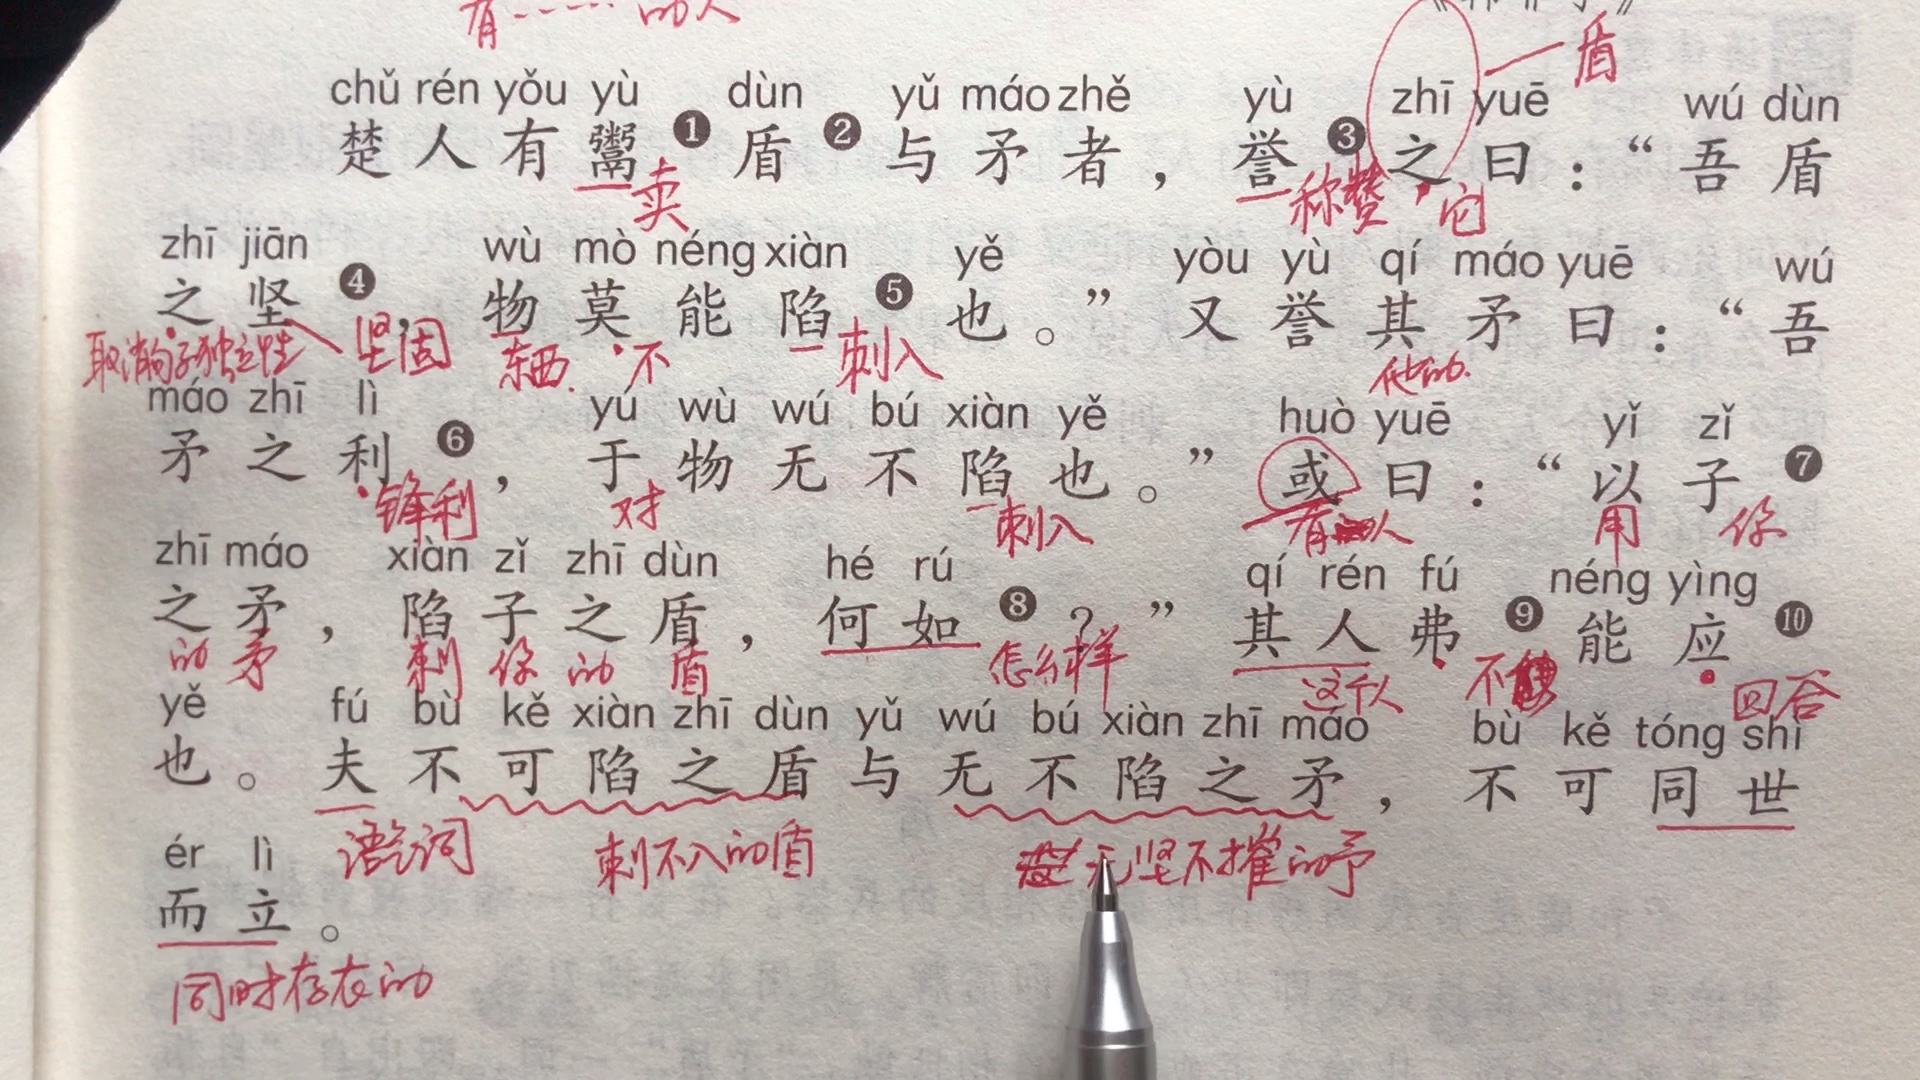 有……的人
chǔ rén yǒu yù dùn yǔ máo zhě yù zhī yuē wú dùn
盾
楚人有鬻❶盾❷与矛者，誉❸之曰：“吾盾
卖 称赞 它
zhī jiān wù mò néng xiàn yě yòu yù qí máo yuē wú
之坚❹，物莫能陷❺也。”又誉其矛曰：“吾
取消句子独立性 坚固 东西 不 刺入 他的
máo zhī lì yú wù wú bú xiàn yě huò yuē yǐ zǐ
矛之利❻，于物无不陷也。”或曰：“以子❼
锋利 对 刺入 有人 用 你
zhī máo xiàn zǐ zhī dùn hé rú qí rén fú néng yìng
之矛，陷子之盾，何如❽？”其人弗❾能应❿
的 矛 刺 你 的 盾 怎么样 这个人 不 回答
yě fú bù kě xiàn zhī dùn yǔ wú bú xiàn zhī máo bù kě tóng shì
也。夫不可陷之盾与无不陷之矛，不可同世
语气词 刺不入的盾 无坚不摧的矛
ér lì
而立。
同时存在的